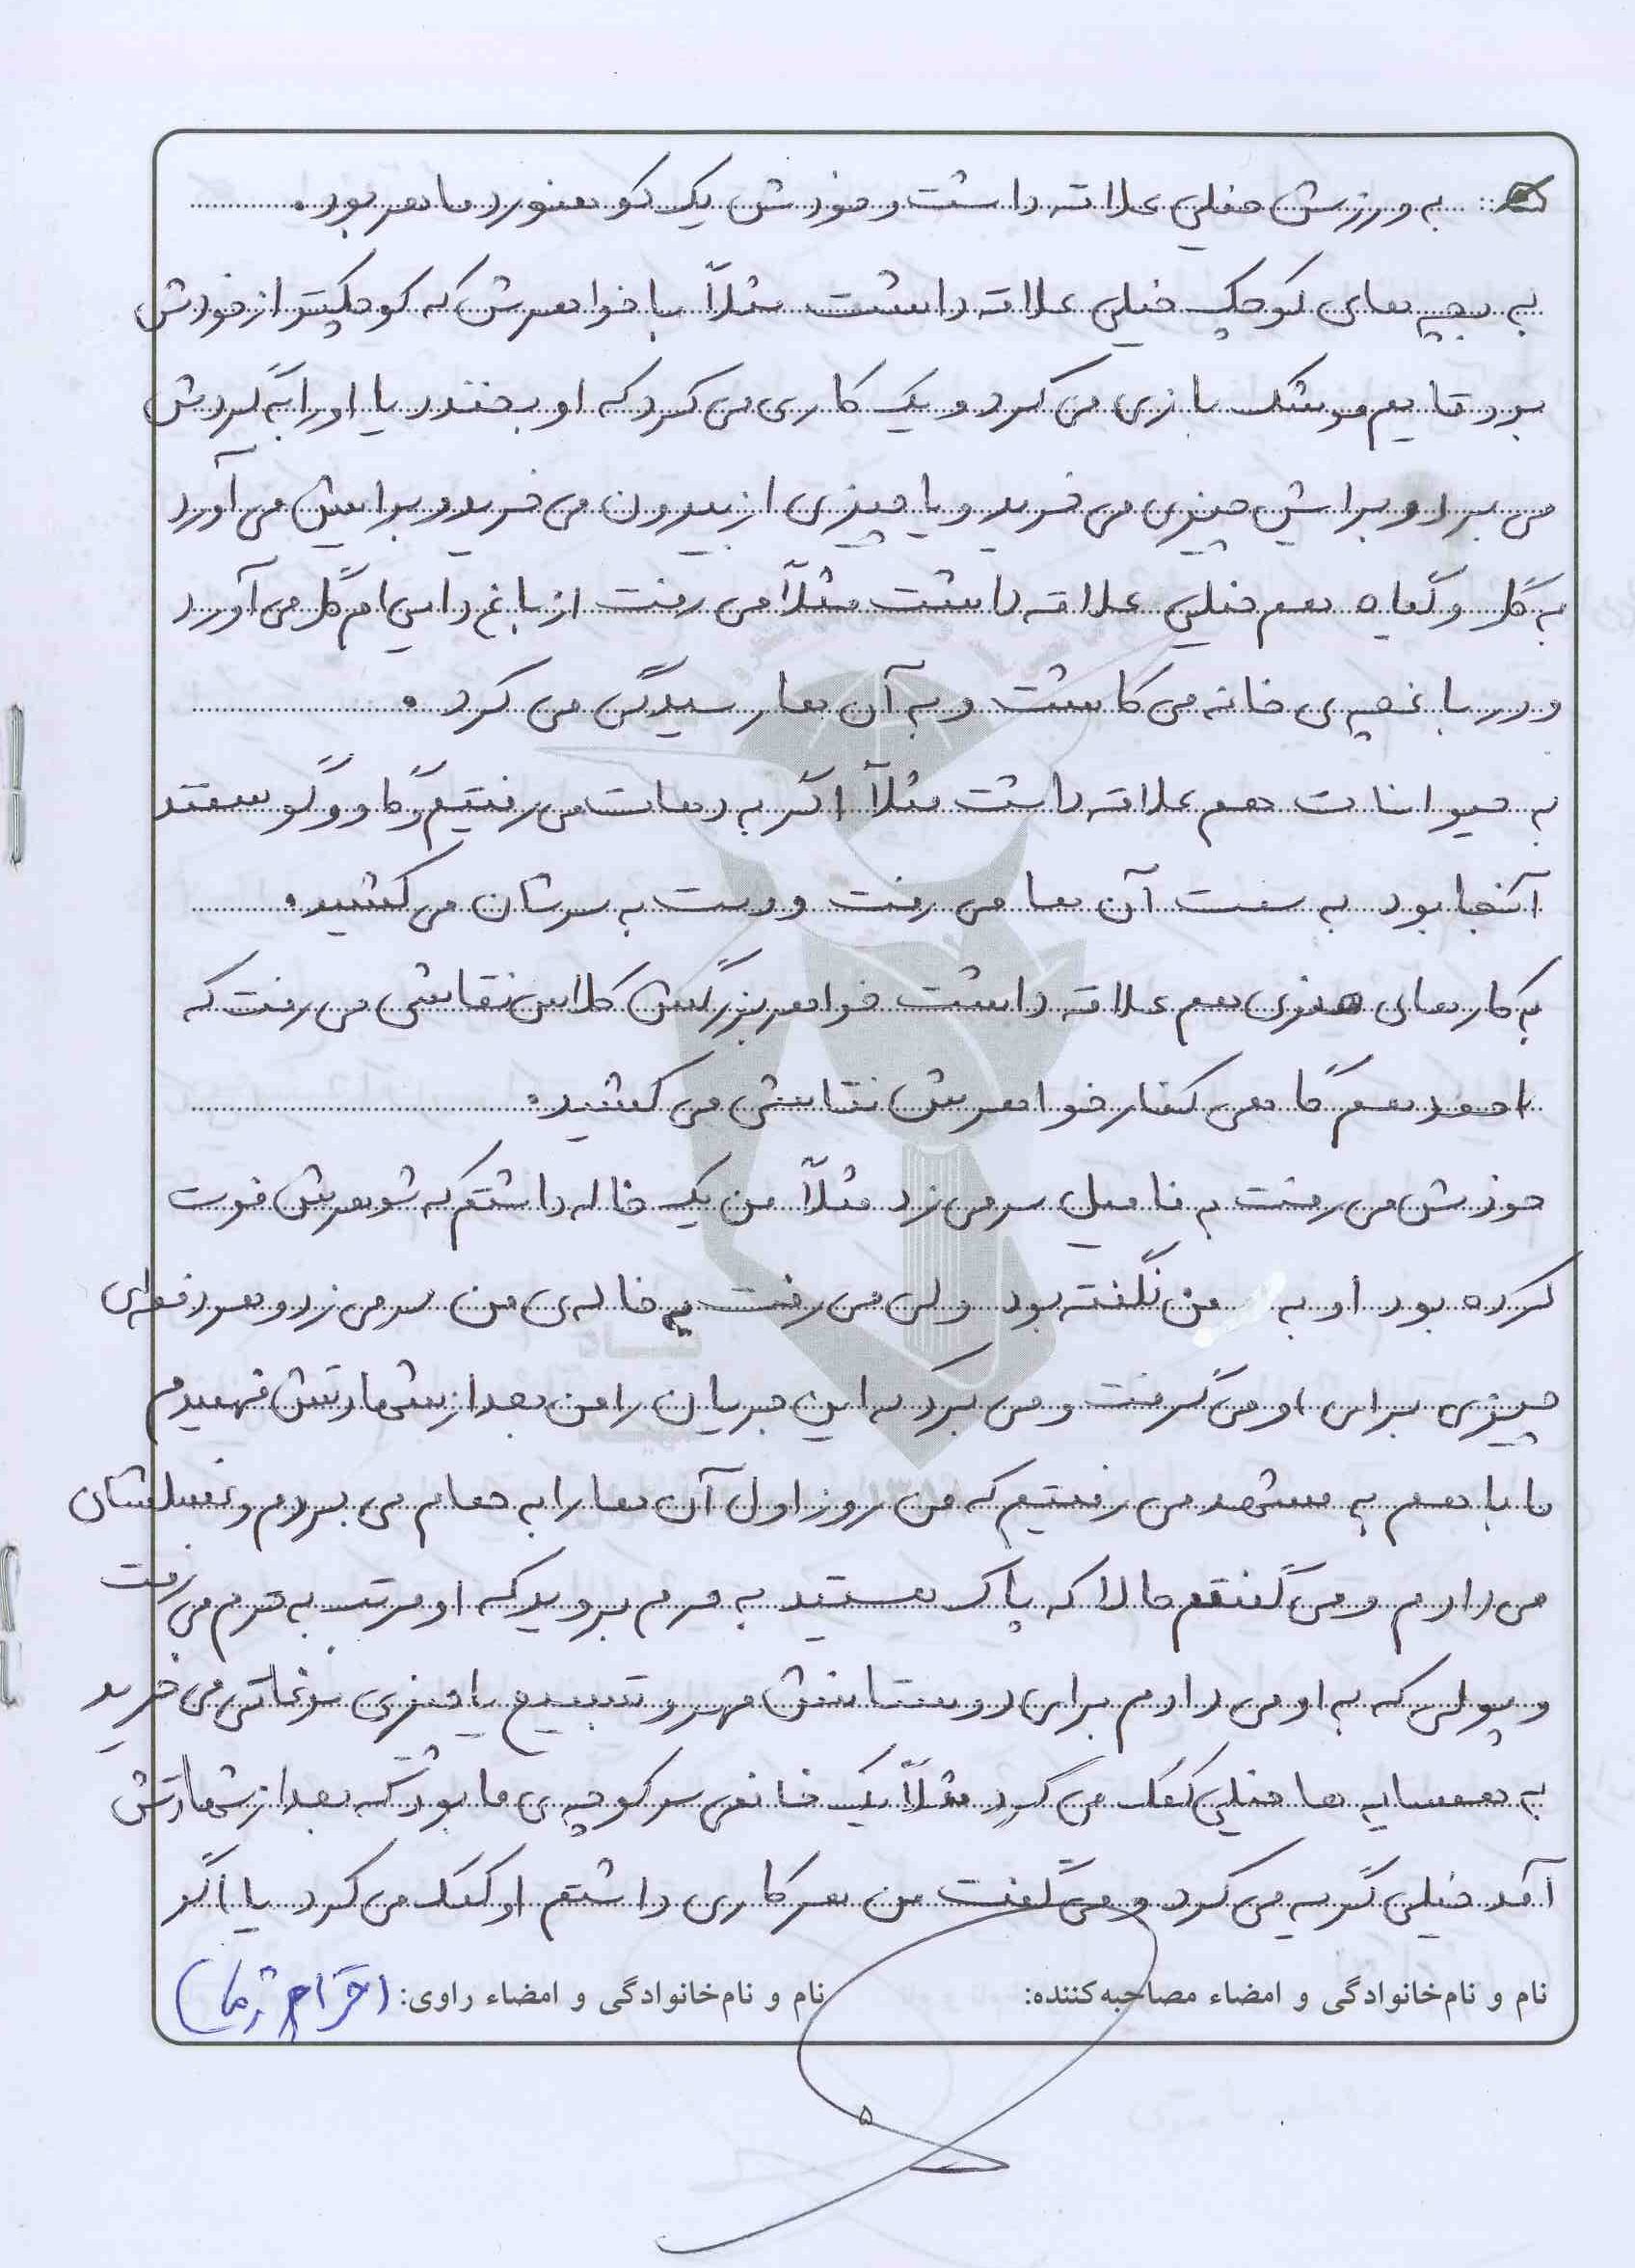 به ورزش خیلی علاقه داشت و خودش یک کوهنورد ماهر بود.
به بچه های کوچک خیلی علاقه داشت مثلاً با خواهرش که کوچکتر از خودش
بود قایم موشک بازی می کرد و یک کاری می کرد که او بخندد یا او را به گردش
می برد و برایش چیزی می خرید و یا چیزی از بیرون می خرید و برایش می آورد
به گل و گیاه هم خیلی علاقه داشت مثلاً می رفت از باغ دایی ام گل می آورد
و در باغچه ی خانه می کاشت و به آن ها رسیدگی می کرد.
به حیوانات هم علاقه داشت مثلاً اگر به دهات می رفتیم و گاو و گوسفند
آنجا بود به سمت آن ها می رفت و دست به سرشان می کشید.
به کارهای هنری هم علاقه داشت خواهر بزرگش کلاس نقاشی می رفت که
احمد هم گاهی کنار خواهرش نقاشی می کشید.
خودش می رفت به فامیل سر می زد مثلاً من یک خاله داشتم که شوهرش فوت
کرده بود او به من نگفته بود ولی می رفت به خاله ی من سر می زد و هر دفعه ای
چیزی برای او می گرفت و می برد که این جریان را من بعد از شهادتش فهمیدم
ما با هم به مشهد می رفتیم که من روز اول آن ها را به حمام می بردم و غسلشان
می دادم و می گفتم حالا که پاک هستید به حرم بروید که او مرتب به حرم می رفت
و پولی که به او می دادم برای دوستانش مهر و تسبیح یا چیزی سوغاتی می خرید
به همسایه ها خیلی کمک می کرد مثلاً یک خانمی سر کوچه ی ما بود که بعد از شهادتش
آمد خیلی گریه می کرد و می گفت من هر کاری داشتم او کمک می کرد یا اگر
نام و نام‌خانوادگی و امضاء مصاحبه‌کننده: نام و نام‌خانوادگی و امضاء راوی:
۵